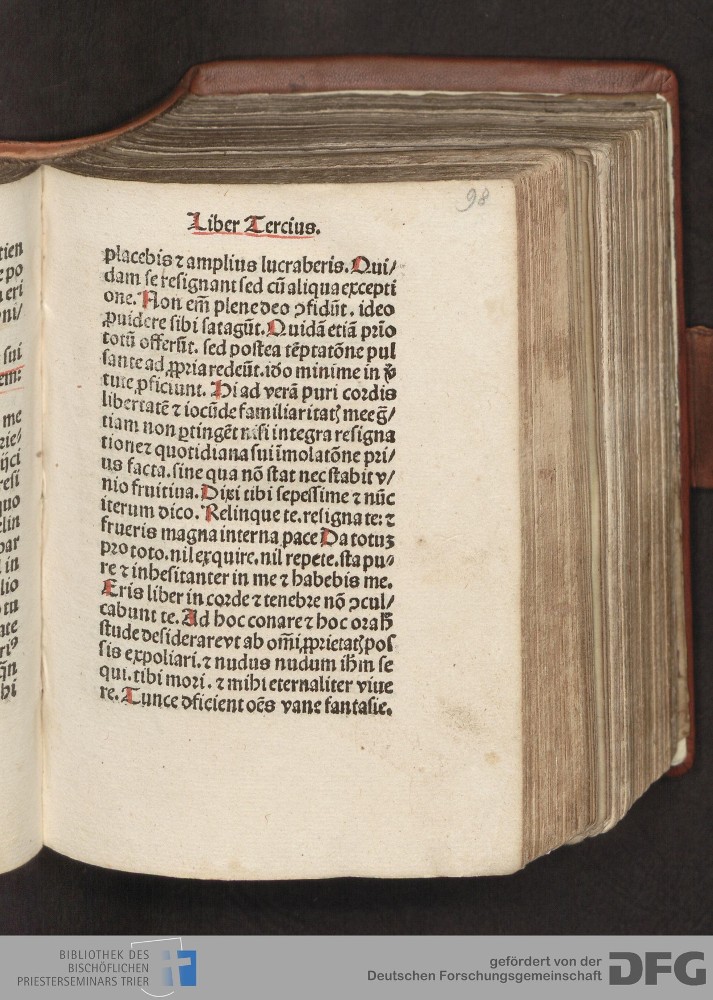 98
Liber Tercius.
placebis ⁊ amplius lucraberis. Qui/
dam se resignant sed cū aliqua excepti
one. Non em̄ plene deo ↄfidūt. ideo
ꝓuidere sibi satagūt. Quidā etiā prīo
totū offerūt. sed postea tēptatōne pul
sante ad ꝓpria redeūt. ido minime in
tute ꝓficiunt. Hi ad verā puri cordis
libertatē ⁊ iocūde familiaritatꝫ mee g̃/
tiam non ꝑtingēt nisi integra resigna
tione ⁊ quotidiana sui imolatōne pri/
us facta. sine qua nō stat nec stabit v/
nio fruitiua. Dixi tibi sepessime ⁊ nūc
iterum dico. Relinque te. resigna te: ⁊
frueris magna interna pace Da totuꝫ
pro toto. nil exquire. nil repete. sta pu⸗
re ⁊ inhesitanter in me ⁊ habebis me.
Eris liber in corde ⁊ tenebre nō ↄcul/
cabunt te. Ad hoc conare ⁊ hoc ora
stude desiderare vt ab om̄i ꝓprietatꝫ pos
sis expoliari. ⁊ nudus nudum ihm̄ se
qui. tibi mori. ⁊ mihi eternaliter viue
re. Tunc deficient oēs vane fantasie.
tien
e po
eri
ni/
sui
em:
me
rie⸗
ijci
resi
quo
elin
par
in
lio
tu
ate
hi
BIBLIOTHEK DES
BISCHÖFLICHEN
PRIESTERSEMINARS TRIER
gefördert von der
Deutschen Forschungsgemeinschaft
DFG